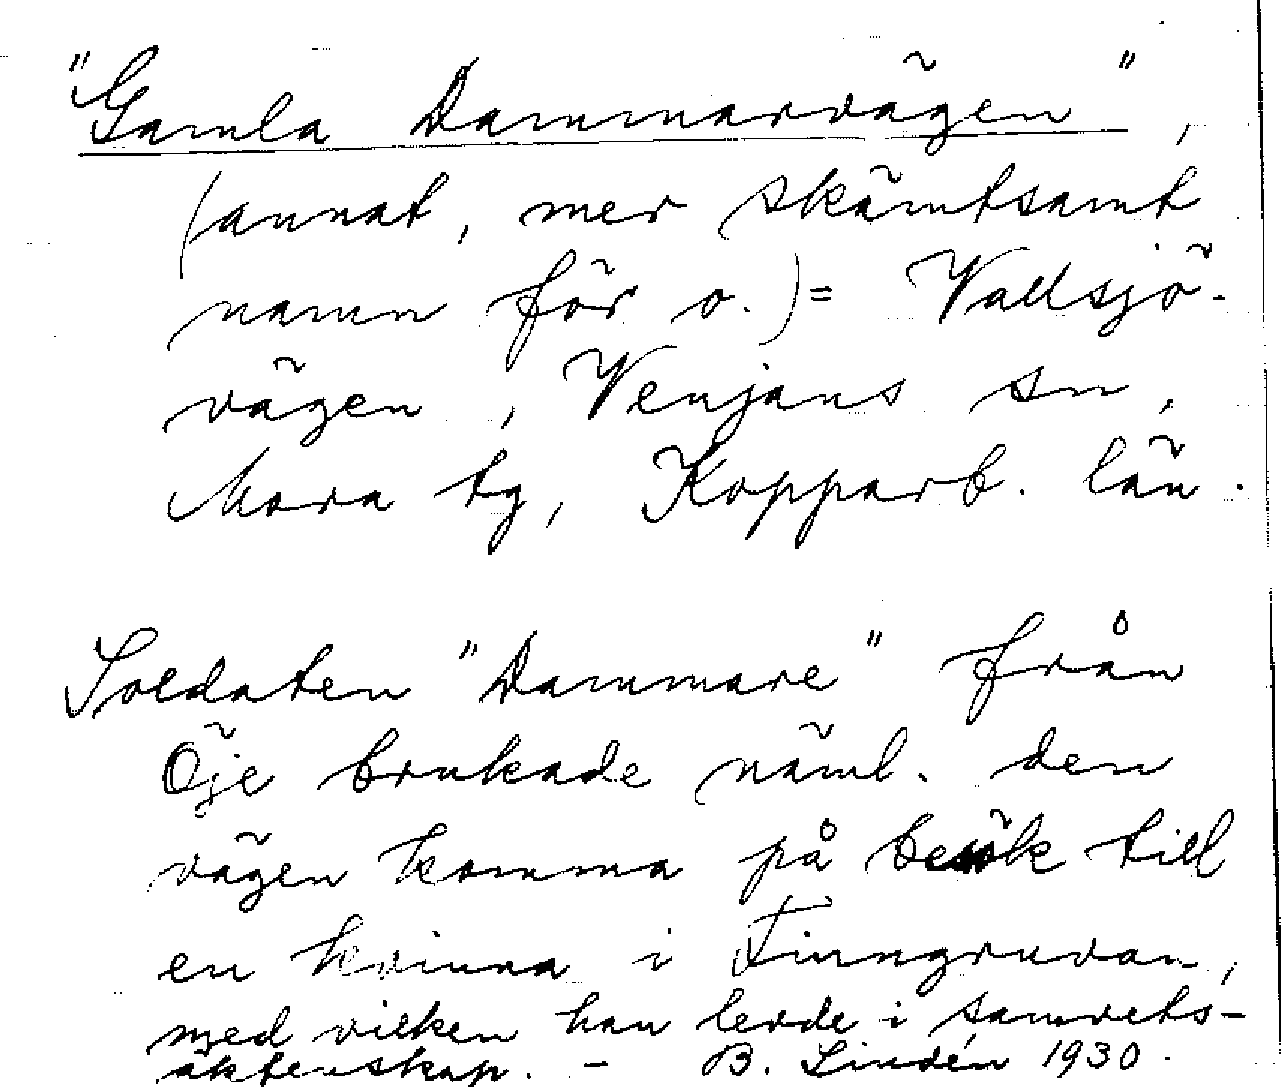 "Gamla Dammarvägen",
(annat, mer skämtsamt
namn för o.) = Vallsjö-
vägen, Venjans sn,
Mora tg, Kopparb. län.
Soldaten "Dammare" från
Öje brukade näml. den
vägen komma på besök till
en kvinna i Finngruvan,
med vilken han levde i samvets-
äktenskap. - B. Lindén 1930.